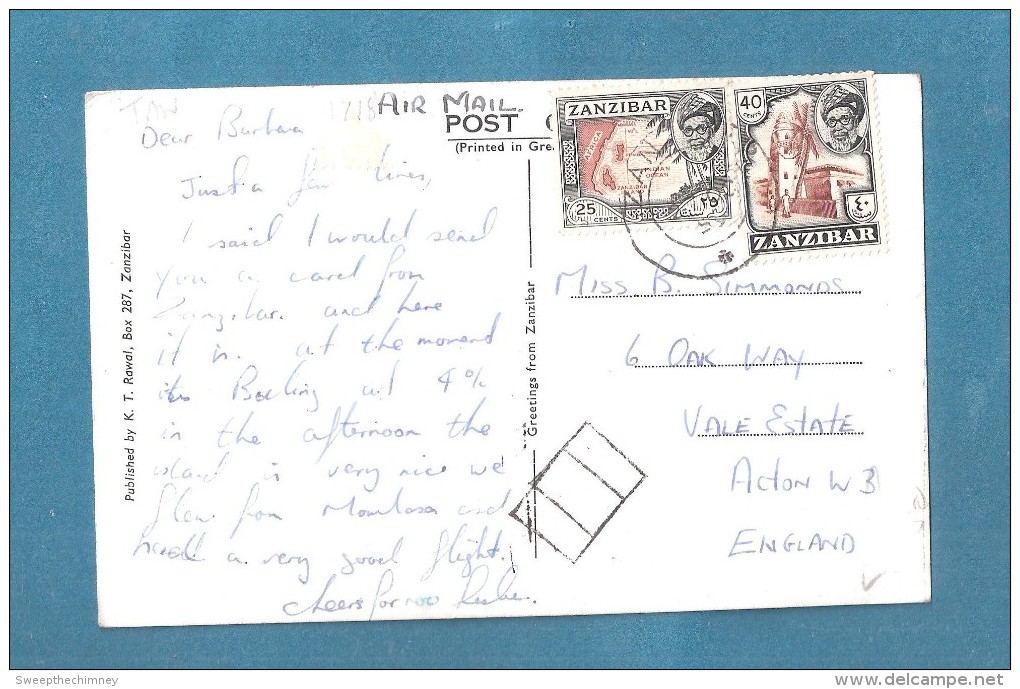 AIR MAIL.
POST
(Printed in Gre
Dear Barbara
Just a few lines,
I said I would send
you a card from
Zanzibar. and here
it is. at the moment
its Boiling at 4 o/c
in the afternoon the
island is very nice we
flew from Mombasa and
had a very good flight.
cheers for now
Published by K. T. Rawal, Box 287, Zanzibar
Greetings from Zanzibar
ZANZIBAR
AFRICA
INDIAN
OCEAN
ZANZIBAR
25 CENTS
٢٥
40
CENTS
٤٠
ZANZIBAR
MISS B. SIMMONDS
6 OAK WAY
VALE ESTATE
ACTON W3
ENGLAND
Sweepthechimney
www.delcampe.net